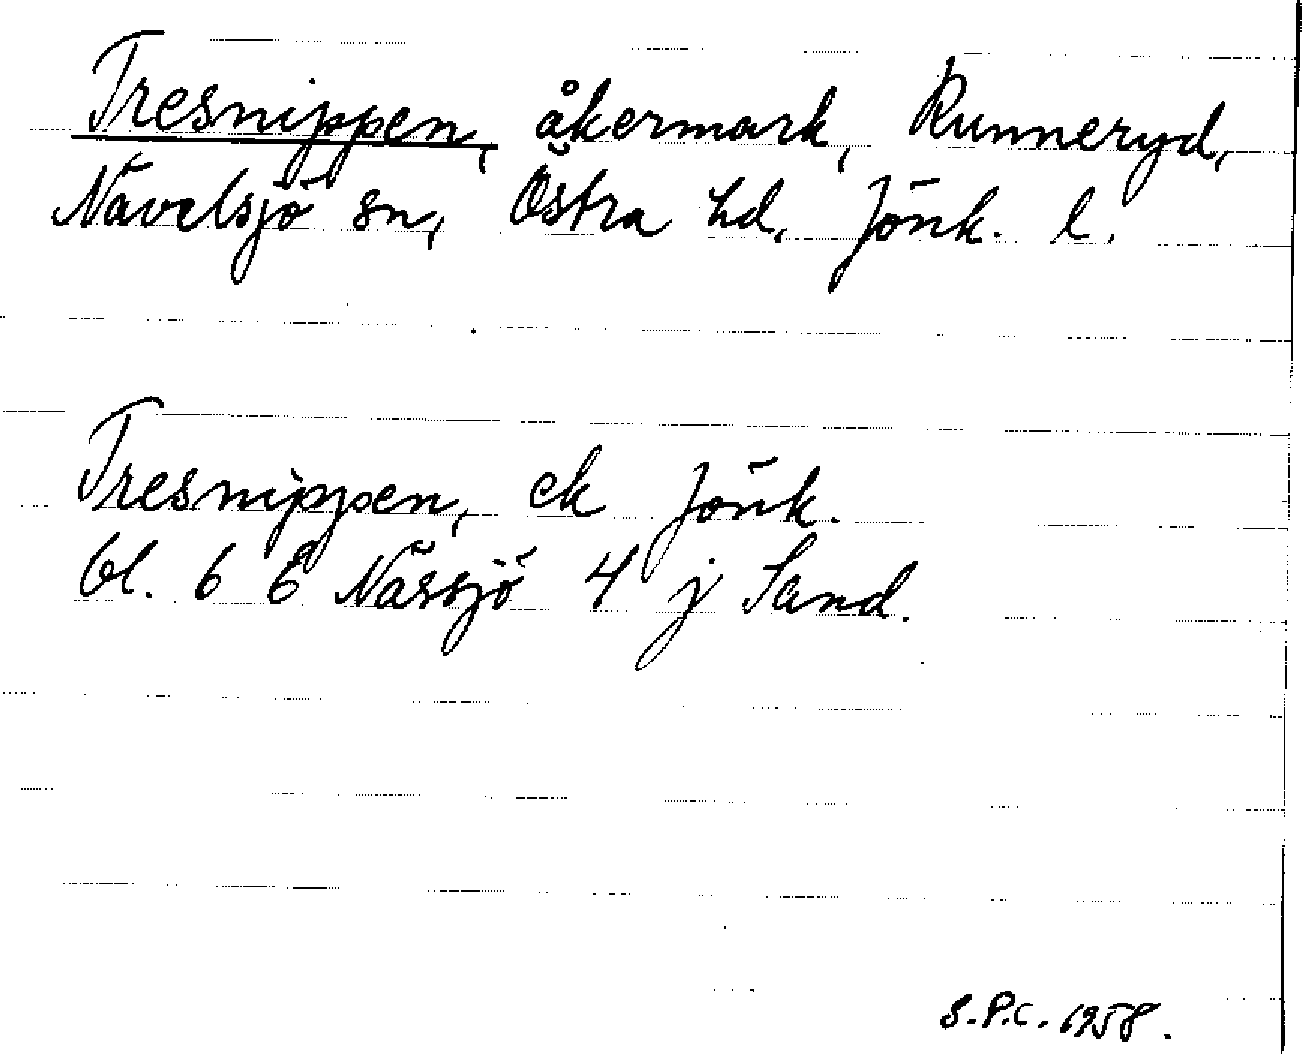 Tresnippen, åkermark, Runneryd,
Nävelsjö sn, Östra hd, Jönk. l.
Tresnippen, ek Jönk.
bl. 6 E Nässjö 4 j Sand.
S.P.C. 1958.